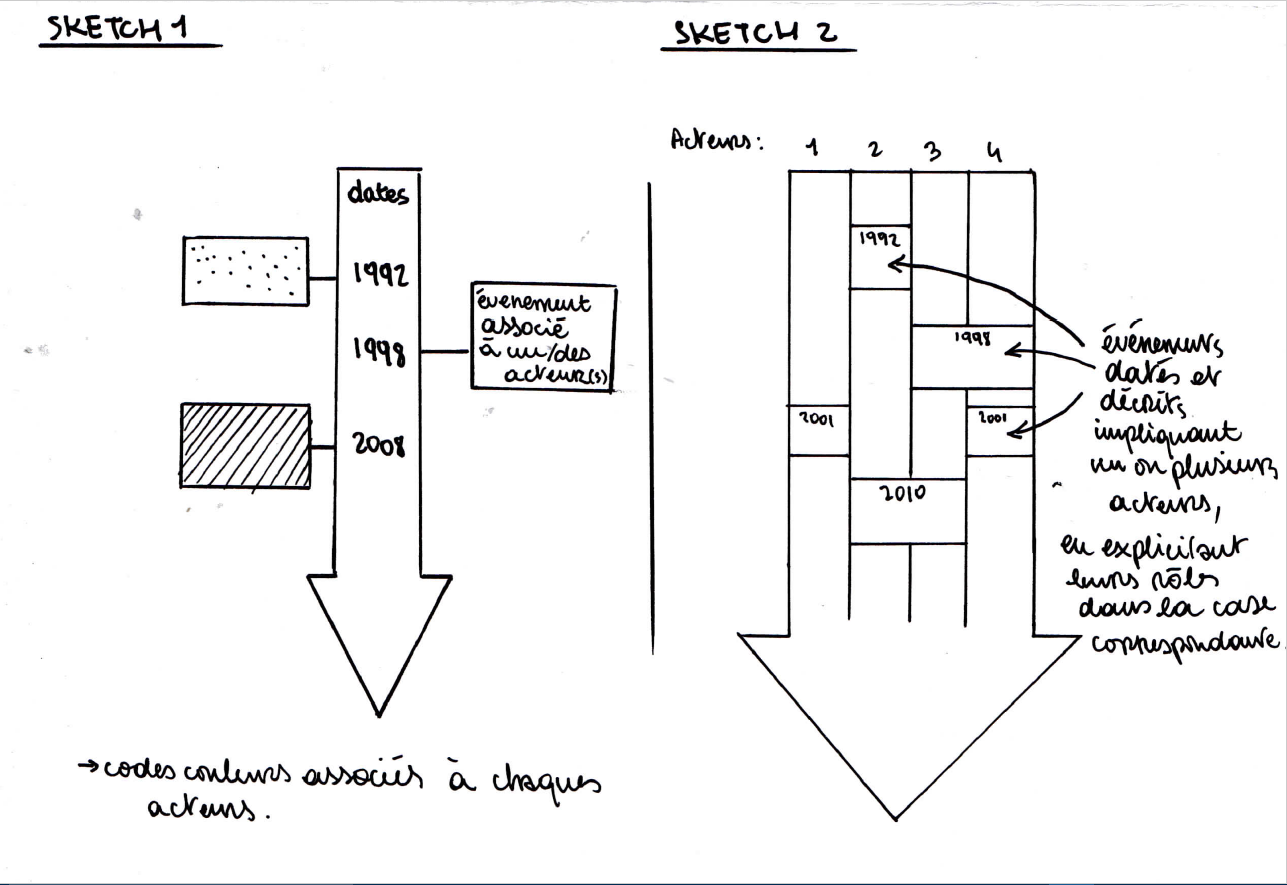 SKETCH 1
dates
1992
1998
2008
évenement
associé
à un/des
acteur(s)
→ codes couleurs associés à chaques
acteurs.
SKETCH 2
Acteurs: 1 2 3 4
1992
1998
2001 2001
2010
événements
datés et
décrits
impliquant
un ou plusieurs
acteurs,
en explicitant
leurs rôles
dans la case
correspondante.